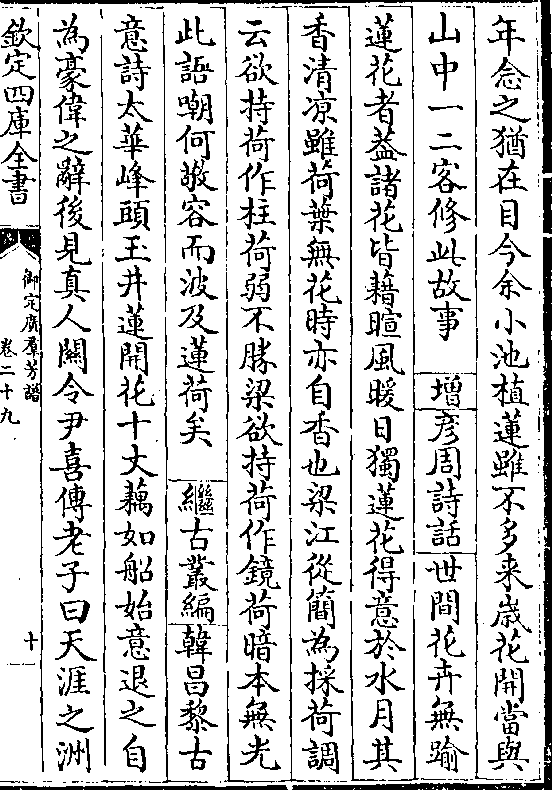 年念之猶在目今余小池植蓮雖不多来歳花開當與
山中一二客修此故事 增彦周詩話世間花卉無踰
蓮花者葢諸花皆藉暄風暖日獨蓮花得意於水月其
香清凉雖荷葉無花時亦自香也梁江從簡為採荷調
云欲持荷作柱荷弱不勝梁欲持荷作鏡荷暗本無光
此語嘲何敬容而波及蓮荷矣 繼古叢編韓昌黎古
意詩太華峰頭玉井蓮開花十丈藕如船始意退之自
為豪偉之辭後見真人關令尹喜傳老子曰天涯之洲
欽定四庫全書
御定廣羣芳譜
卷二十九
十